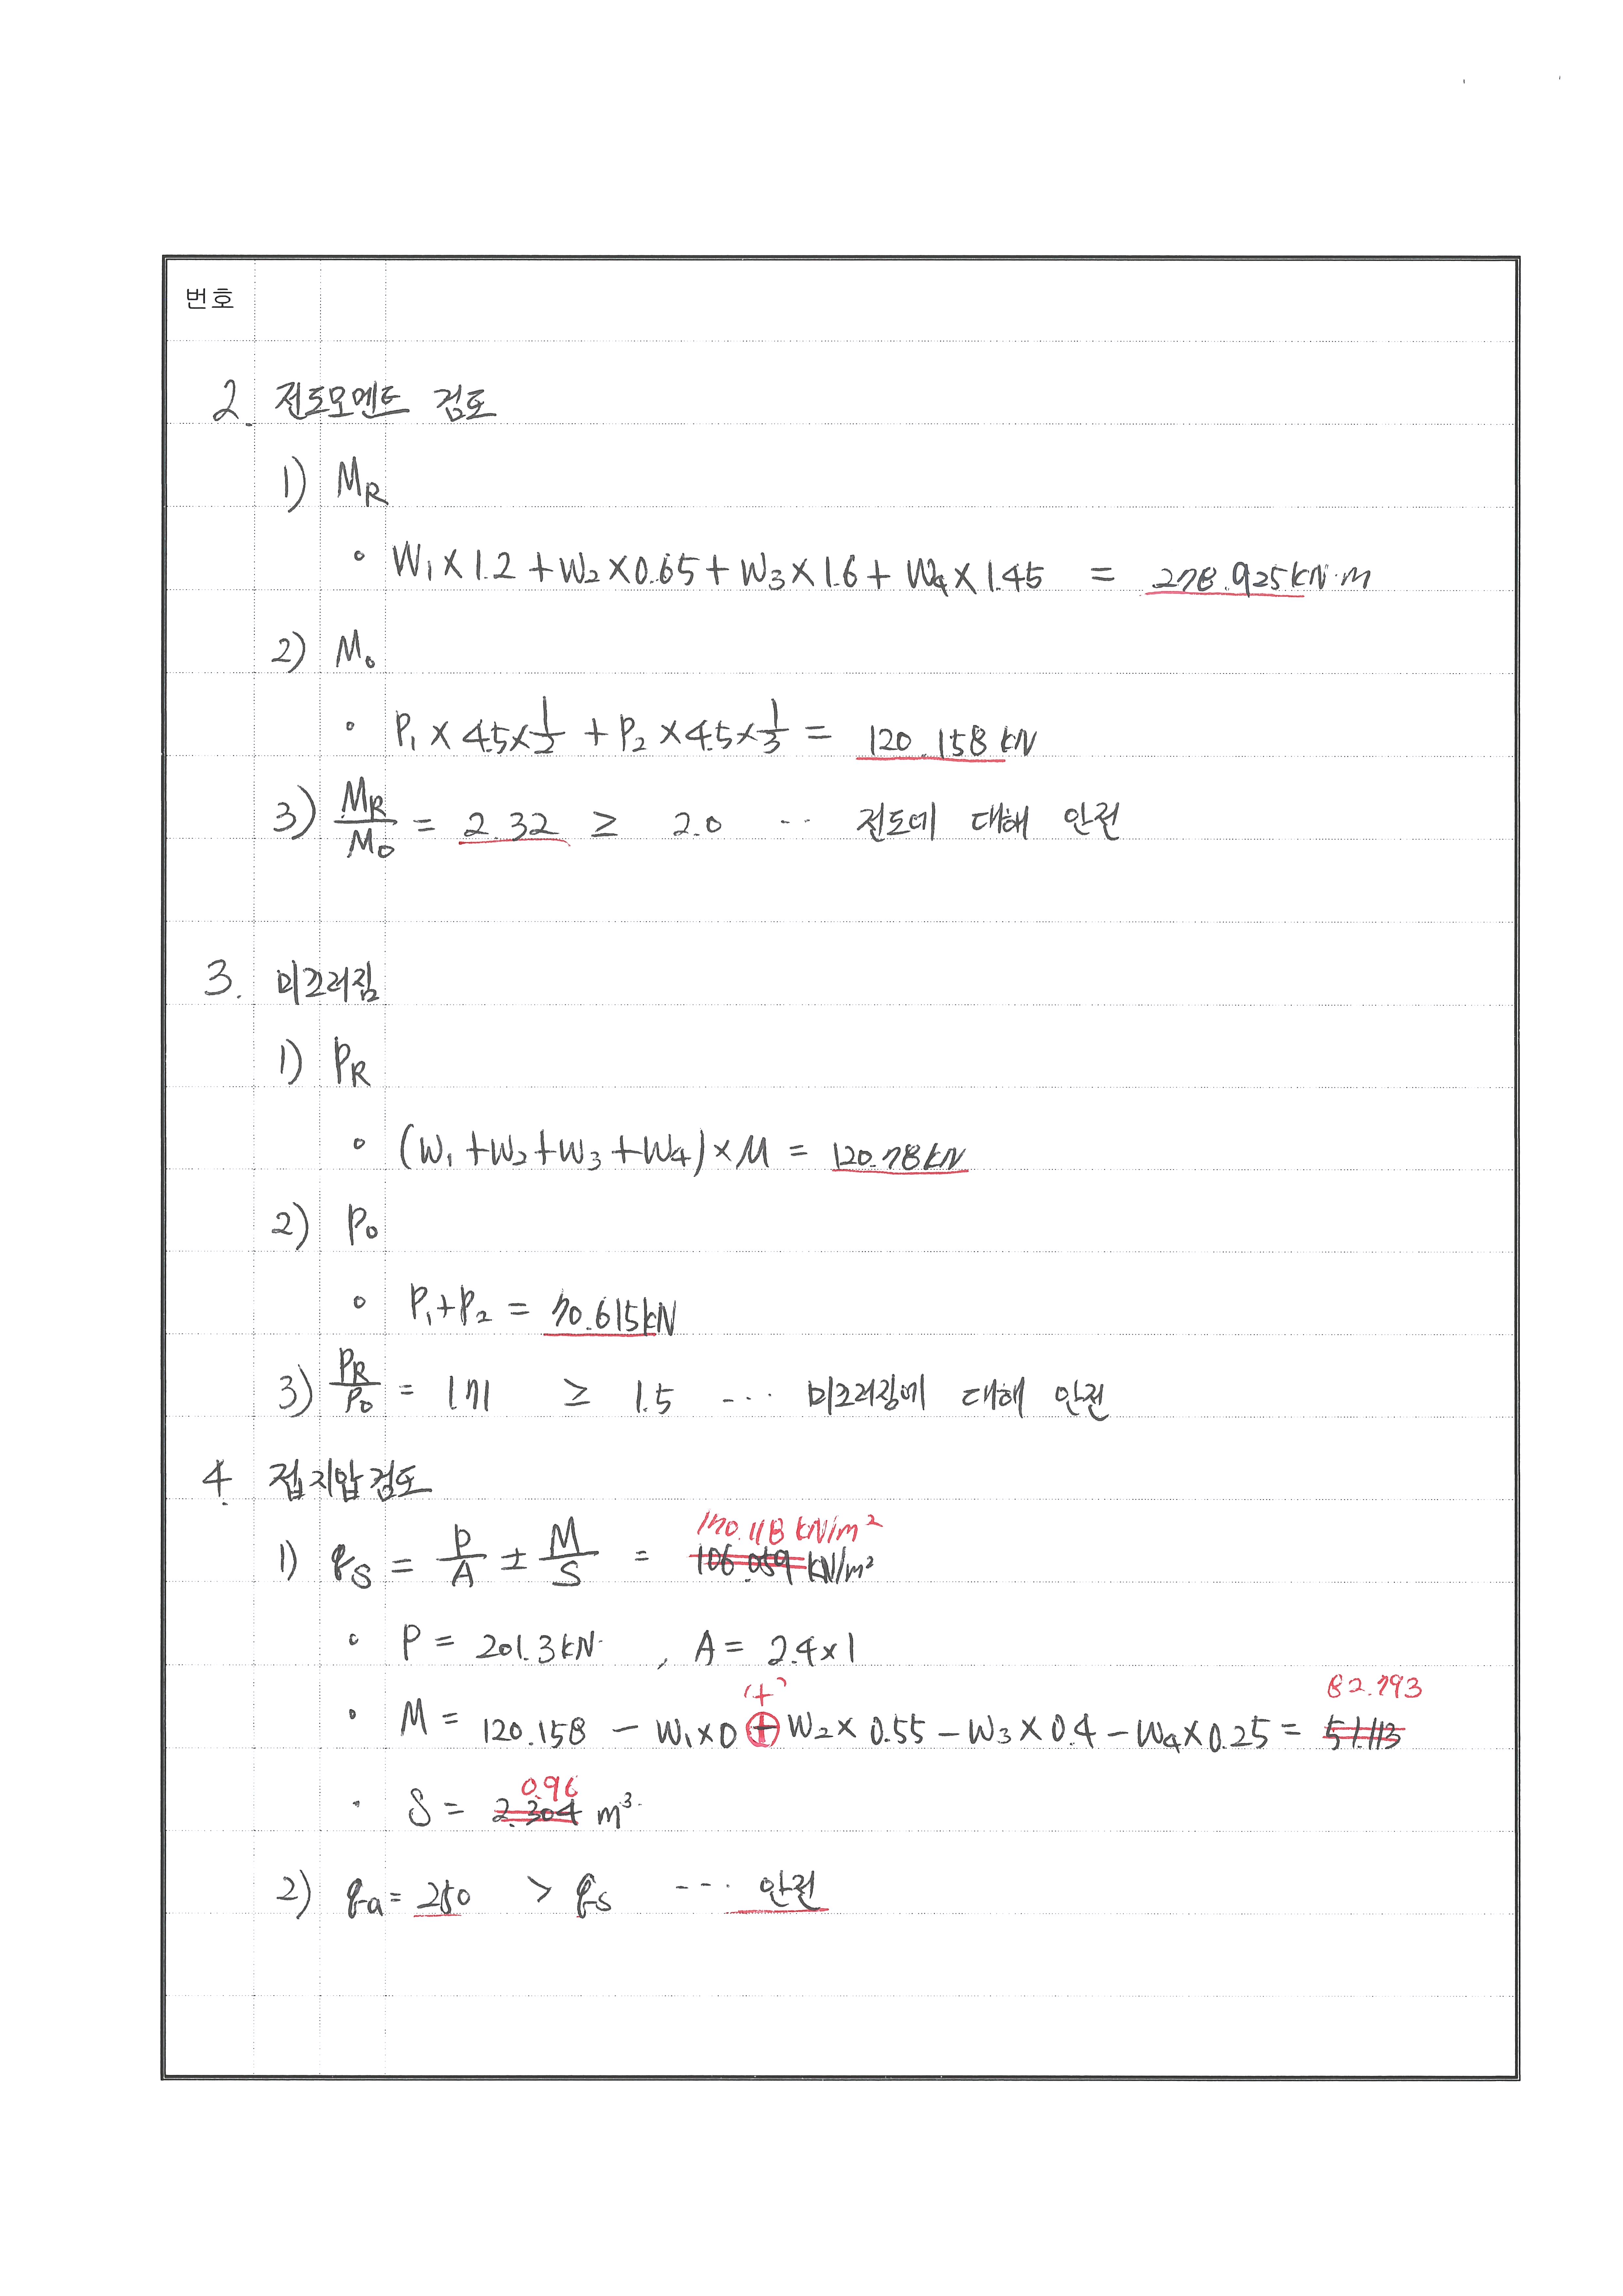 번호
2. 전도모멘트 검토
1) M_R
• W₁ × 1.2 + W₂ × 0.65 + W₃ × 1.6 + W₄ × 1.45 = 278.925 kN·m
2) M₀
• P₁ × 4.5 × 1/2 + P₂ × 4.5 × 1/3 = 120.158 kN
3) M_R/M₀ = 2.32 ≥ 2.0 ··· 전도에 대해 안전
3. 미끄러짐
1) P_R
• (W₁ + W₂ + W₃ + W₄) × μ = 120.78 kN
2) P₀
• P₁ + P₂ = 70.615 kN
3) P_R/P₀ = 1.71 ≥ 1.5 ··· 미끄러짐에 대해 안전
4. 접지압 검토
170.118 kN/m²
1) q_s = P/A ± M/S = 106.059 kN/m²
• P = 201.3 kN , A = 2.4 × 1
'+' 82.793
• M = 120.158 − W₁ × 0 + W₂ × 0.55 − W₃ × 0.4 − W₄ × 0.25 = 51.113
0.96
• S = 2.304 m³
2) q_a = 250 > q_s ··· 안전